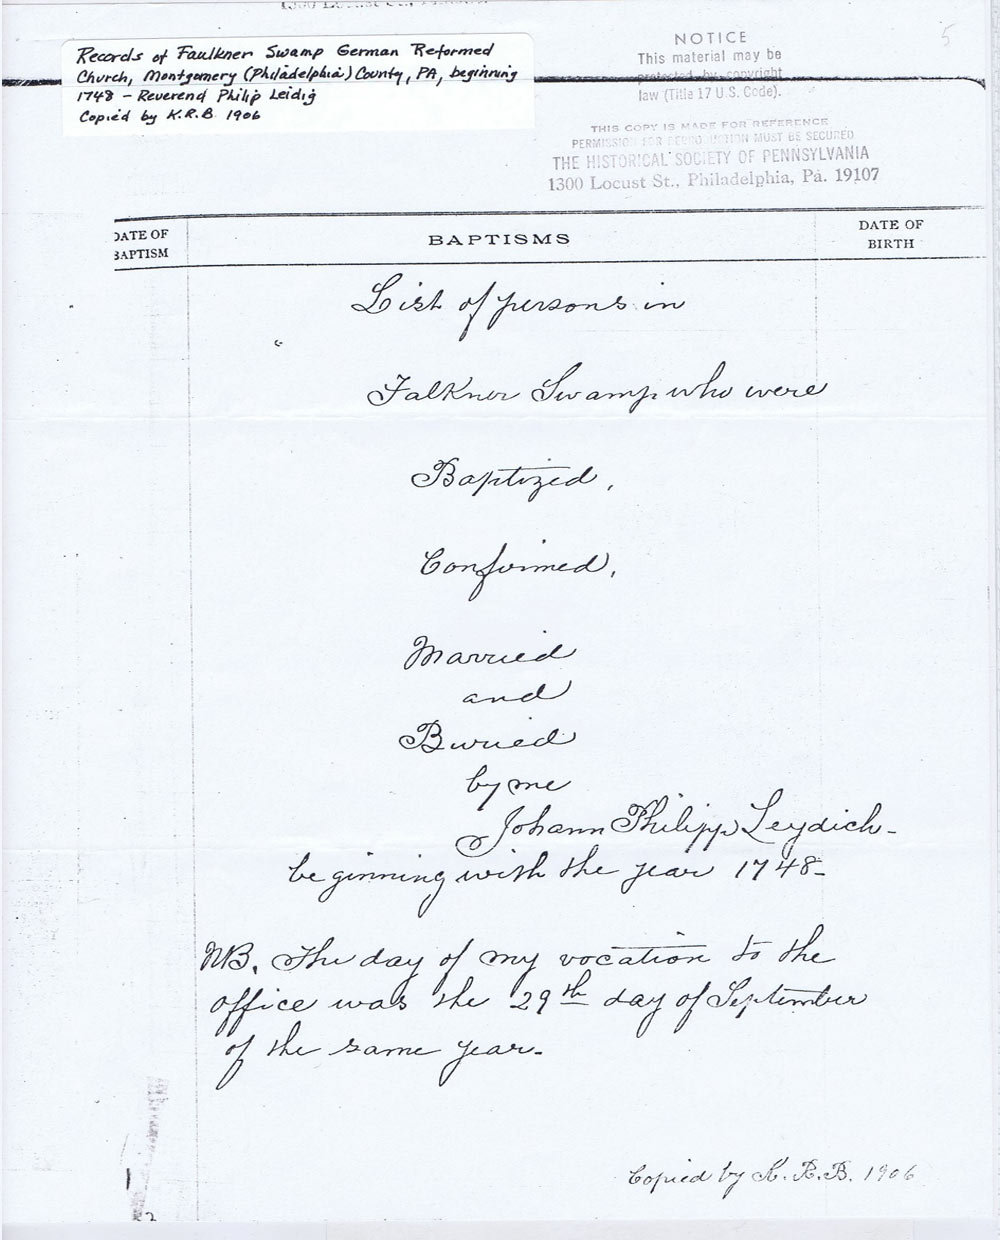 5
Records of Faulkner Swamp German Reformed
Church, Montgomery (Philadelphia) County, PA, beginning
1748 - Reverend Philip Leidig
Copied by K.R.B. 1906
NOTICE
This material may be
protected by copyright
law (Title 17 U.S. Code).
THIS COPY IS MADE FOR REFERENCE
PERMISSION FOR REPRODUCTION MUST BE SECURED
THE HISTORICAL SOCIETY OF PENNSYLVANIA
1300 Locust St., Philadelphia, Pa. 19107
DATE OF
BAPTISM
BAPTISMS
DATE OF
BIRTH
List of persons in
Falkner Swamp who were
Baptized,
Confirmed,
Married
and
Buried
by me
Johann Philipp Leydich-
beginning with the year 1748-
NB. The day of my vocation to the
office was the 29th day of September
of the same year-
Copied by K. R. B. 1906